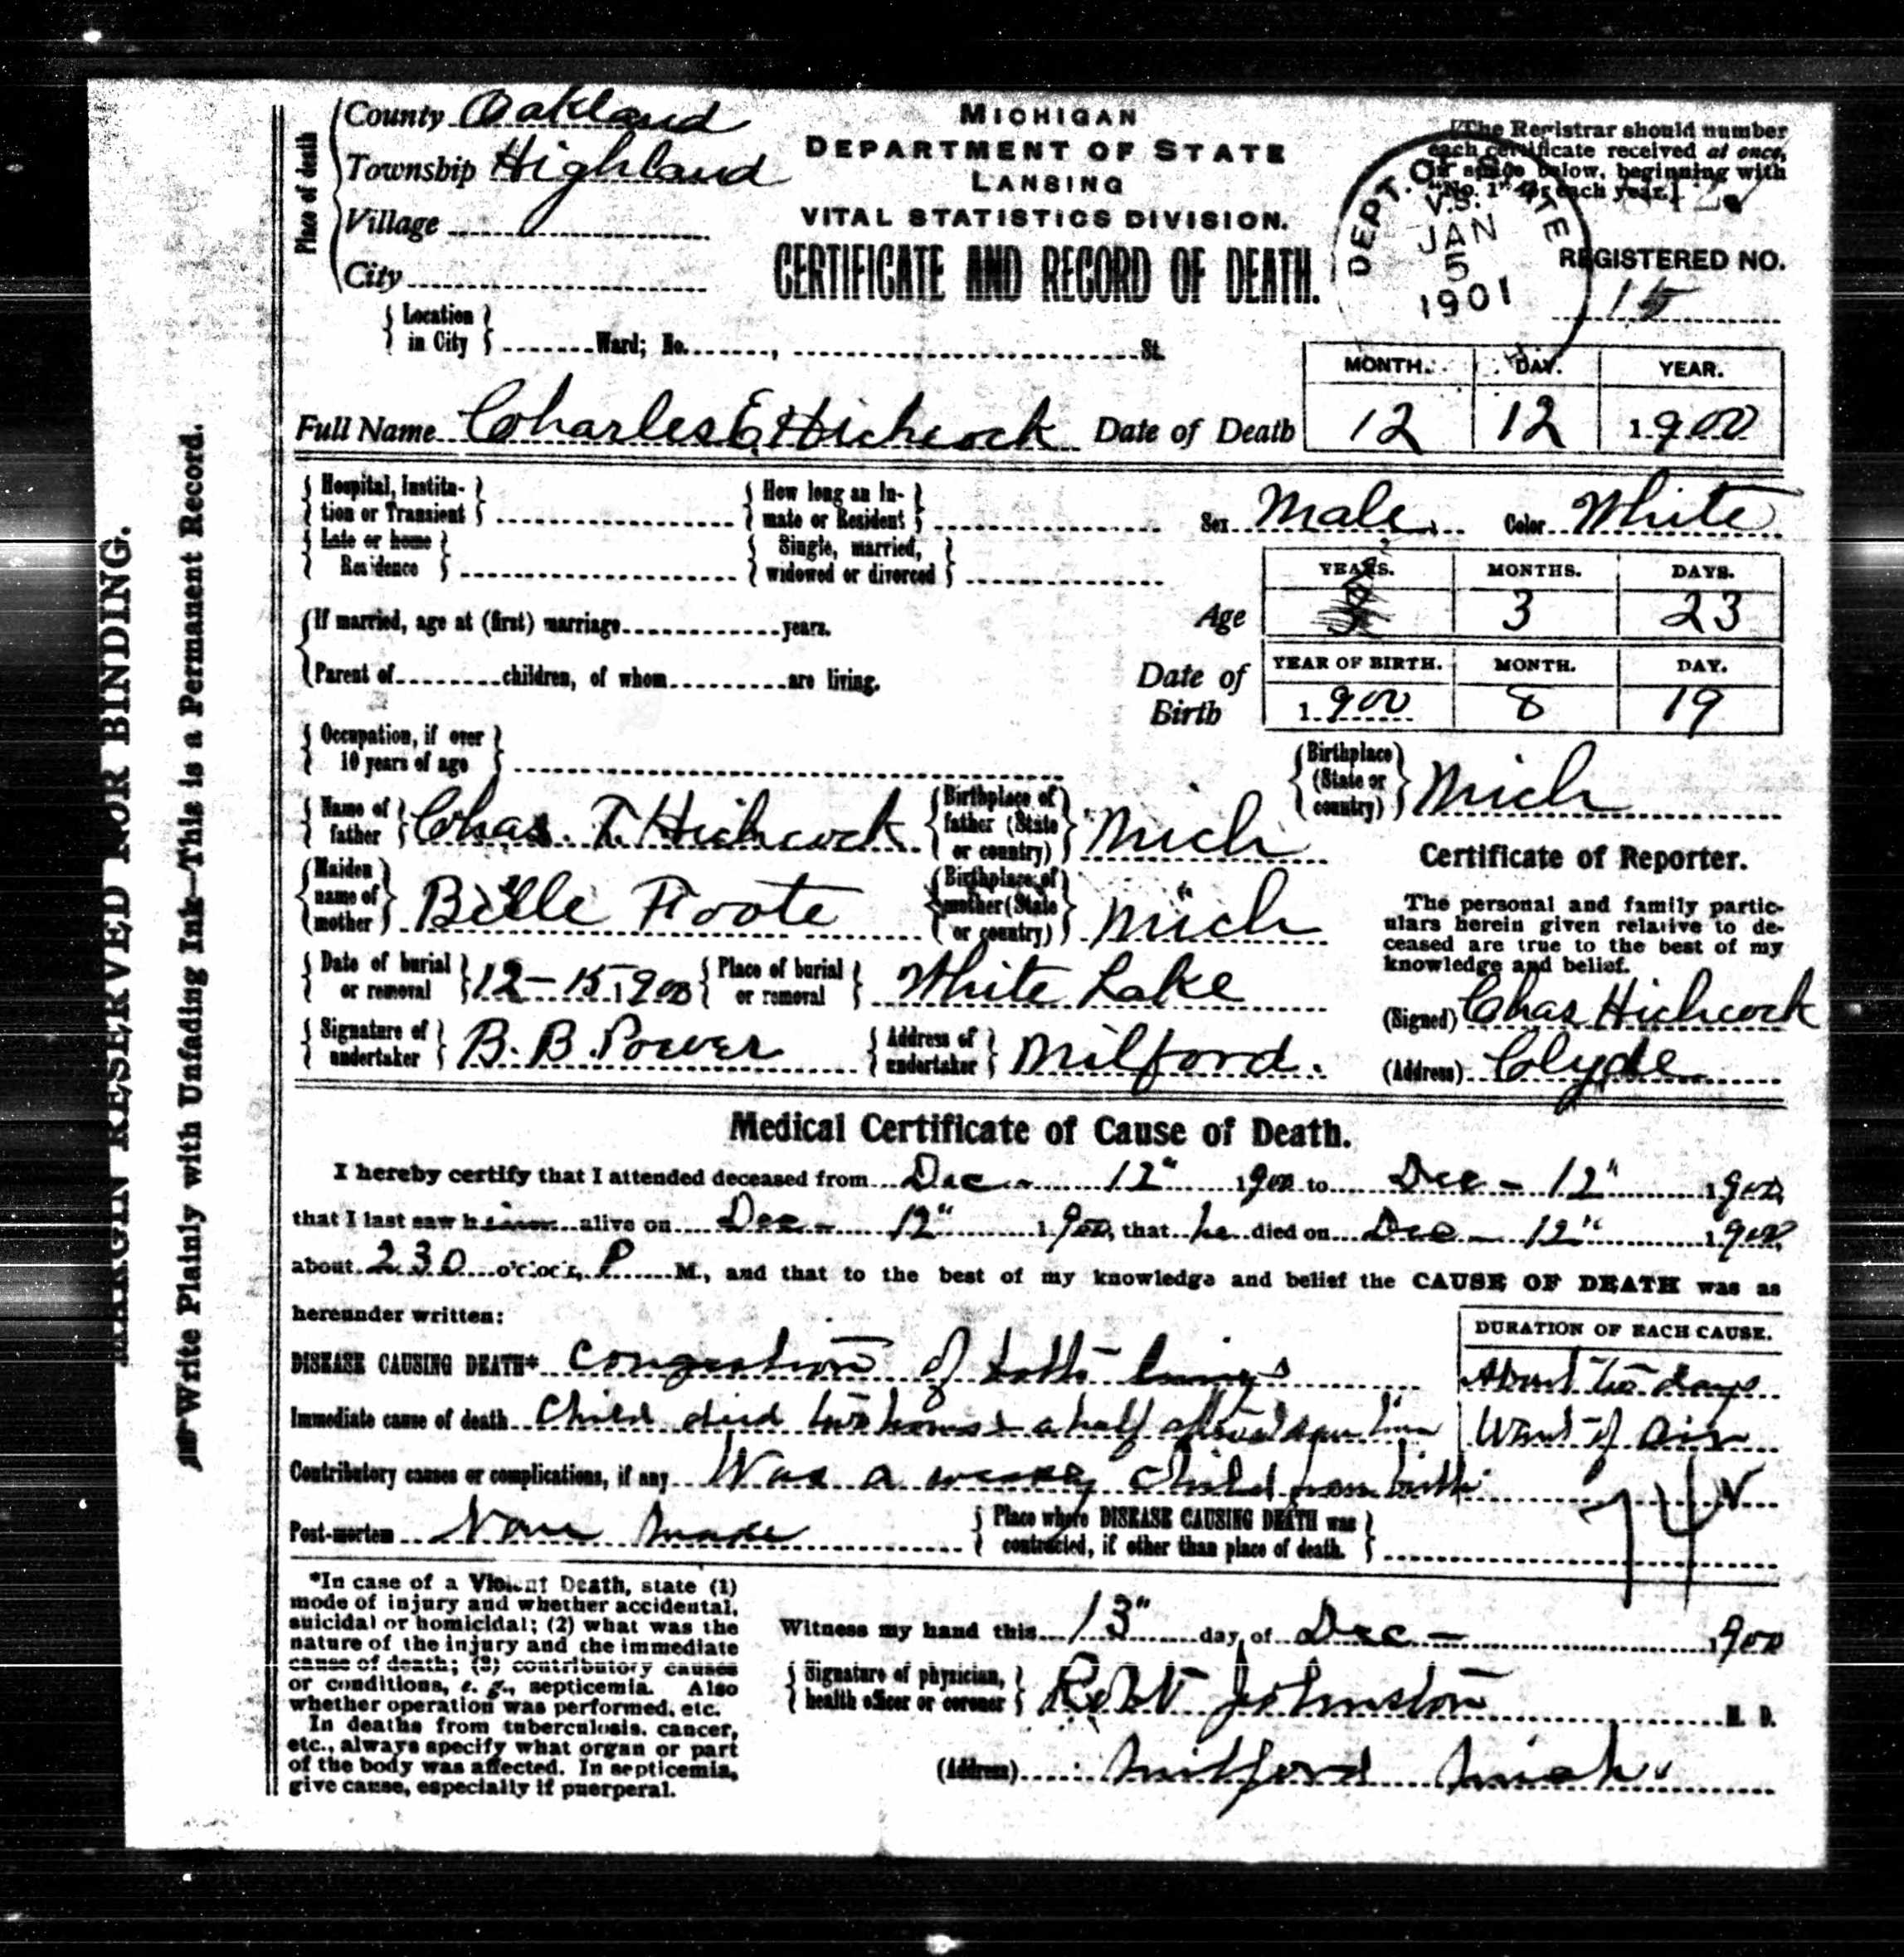 MARGIN RESERVED FOR BINDING.
Write Plainly with Unfading Ink—This is a Permanent Record.
Place of death
County Oakland
Township Highland
Village
City
MICHIGAN
DEPARTMENT OF STATE
LANSING
VITAL STATISTICS DIVISION.
CERTIFICATE AND RECORD OF DEATH.
[The Registrar should number
each certificate received at once,
in space below, beginning with
"No. 1" for each year.]
DEPT. OF STATE
V.S.
JAN
5
1901
REGISTERED NO.
15
Location in City Ward; No. , St.
MONTH. DAY. YEAR.
Full Name Charles E. Hichcock Date of Death 12 12 1900
Hospital, Institution or Transient How long an Inmate or Resident Sex Male Color White
Late or home Residence Single, married, widowed or divorced
YEARS. MONTHS. DAYS.
If married, age at (first) marriage years. Age 3 23
Parent of children, of whom are living.
YEAR OF BIRTH. MONTH. DAY.
Date of Birth 1900 8 19
Occupation, if over 10 years of age Birthplace (State or country) Mich
Name of father Chas. T. Hichcock Birthplace of father (State or country) Mich
Maiden name of mother Belle Foote Birthplace of mother (State or country) Mich
Date of burial or removal 12-15 1900 Place of burial or removal White Lake
Signature of undertaker B. B. Power Address of undertaker Milford.
Certificate of Reporter.
The personal and family partic-
ulars herein given relative to de-
ceased are true to the best of my
knowledge and belief.
(Signed) Chas Hichcock
(Address) Clyde
Medical Certificate of Cause of Death.
I hereby certify that I attended deceased from Dec 12" 1900 to Dec - 12" 1900,
that I last saw him alive on Dec 12" 1900, that he died on Dec - 12" 1900,
about 230 o'clock, P M., and that to the best of my knowledge and belief the CAUSE OF DEATH was as
hereunder written:
DURATION OF EACH CAUSE.
DISEASE CAUSING DEATH* Congestion of both lungs About two days
Immediate cause of death Child died two hours & a half after Want of air
Contributory causes or complications, if any Was a weakly child from birth
74
Post-mortem None made Place where DISEASE CAUSING DEATH was contracted, if other than place of death.
*In case of a Violent Death, state (1)
mode of injury and whether accidental,
suicidal or homicidal; (2) what was the
nature of the injury and the immediate
cause of death; (3) contributory causes
or conditions, e. g., septicemia. Also
whether operation was performed, etc.
In deaths from tuberculosis, cancer,
etc., always specify what organ or part
of the body was affected. In septicemia,
give cause, especially if puerperal.
Witness my hand this 13" day of Dec - 1900
Signature of physician, health officer or coroner Robt Johnston M. D.
(Address) Milford Mich.